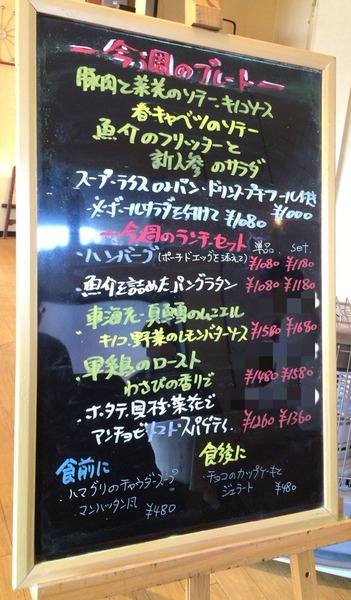 今週のプレート
豚肉と菜花のソテー、キノコソース
春キャベツのソテー
魚介のフリッターと
新人参のサラダ
スープ・ライスorパン・ドリンク・プチフール付 ¥1000
メゴールサラダを付けて ¥1080
今週のランチセット 単品 set
・ハンバーグ(ポーチドエッグを添えて) ¥1080 ¥1180
・魚介を詰めたパングラタン ¥1080 ¥1180
・車海老・真鯛のムニエル
キノコ、野菜のレモンバターソース ¥1580 ¥1680
・軍鶏のロースト
わさびの香りで ¥1480 ¥1580
・ホタテ、貝柱・菜花で
アンチョビ スパゲティ ¥1260 ¥1360
食前に
・ハマグリのチャウダースープ
マンハッタン風 ¥480
食後に
・チョコのカップケーキと
ジェラート ¥480